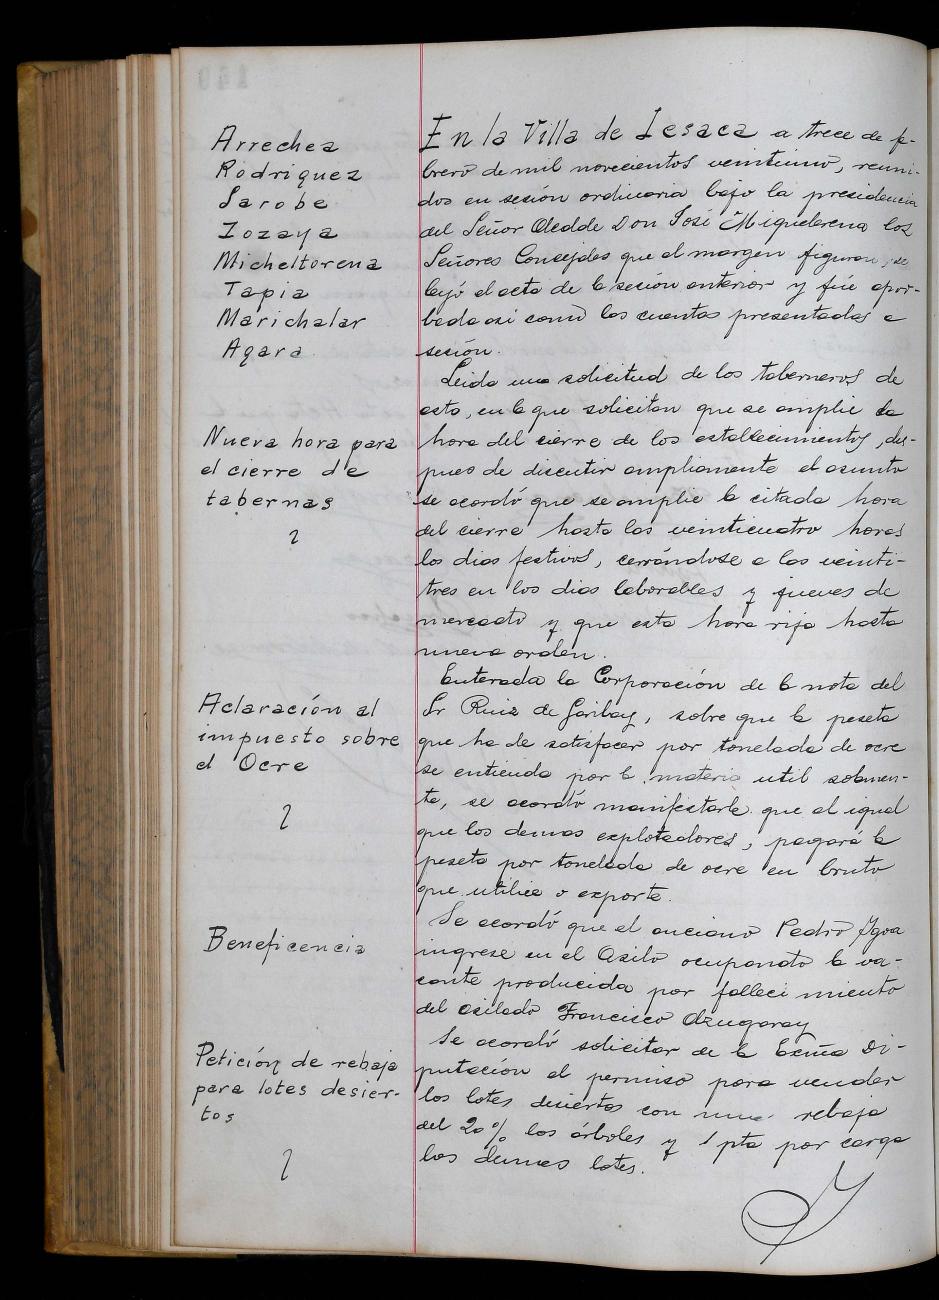 Arrechea
Rodriguez
Larobe
Zozaya
Micheltorena
Tapia
Marichalar
Agara
En la Villa de Lesaca a trece de fe-
brero de mil novecientos veintiuno, reuni-
dos en sesión ordinaria bajo la presidencia
del Señor Alcalde Don José Miquelerena los
Señores Concejales que al margen figuran, se
leyó el acta de la sesión anterior y fué apor-
bada asi como las cuentas presentadas a
sesión.
Nueva hora para
el cierre de
tabernas
Leida una solicitud de los taberneros de
esta, en la que solicitan que se amplie la
hora del cierre de los establecimientos, des-
pues de discutir ampliamente el asunto
se acordó que se amplie la citada hora
del cierre hasta las veinticuatro horas
los dias festivos, cerrándose a las veinti-
tres en los dias laborables y jueves de
mercado y que esta hora rija hasta
nueva orden.
Aclaración al
impuesto sobre
el Ocre
Enterada la Corporación de la nota del
Sr Ruiz de Garibay, sobre que la peseta
que ha de satisfacer por tonelada de ocre
se entienda por la materia util solamen-
te, se acordó manifestarle que al igual
que los demas explotadores, pagará la
peseta por tonelada de ocre en bruto
que utilice o exporte.
Beneficencia
Se acordó que el anciano Pedro Igoa
ingrese en el Asilo ocupando la va-
cante producida por falleci miento
del asilado Francisco Alzugaray
Petición de rebaja
para lotes desier-
tos
Se acordó solicitar de la Excma Di-
putación el permiso para vender
los lotes desiertos con una rebaja
del 20% los árboles y 1 pta por carga
los demas lotes.